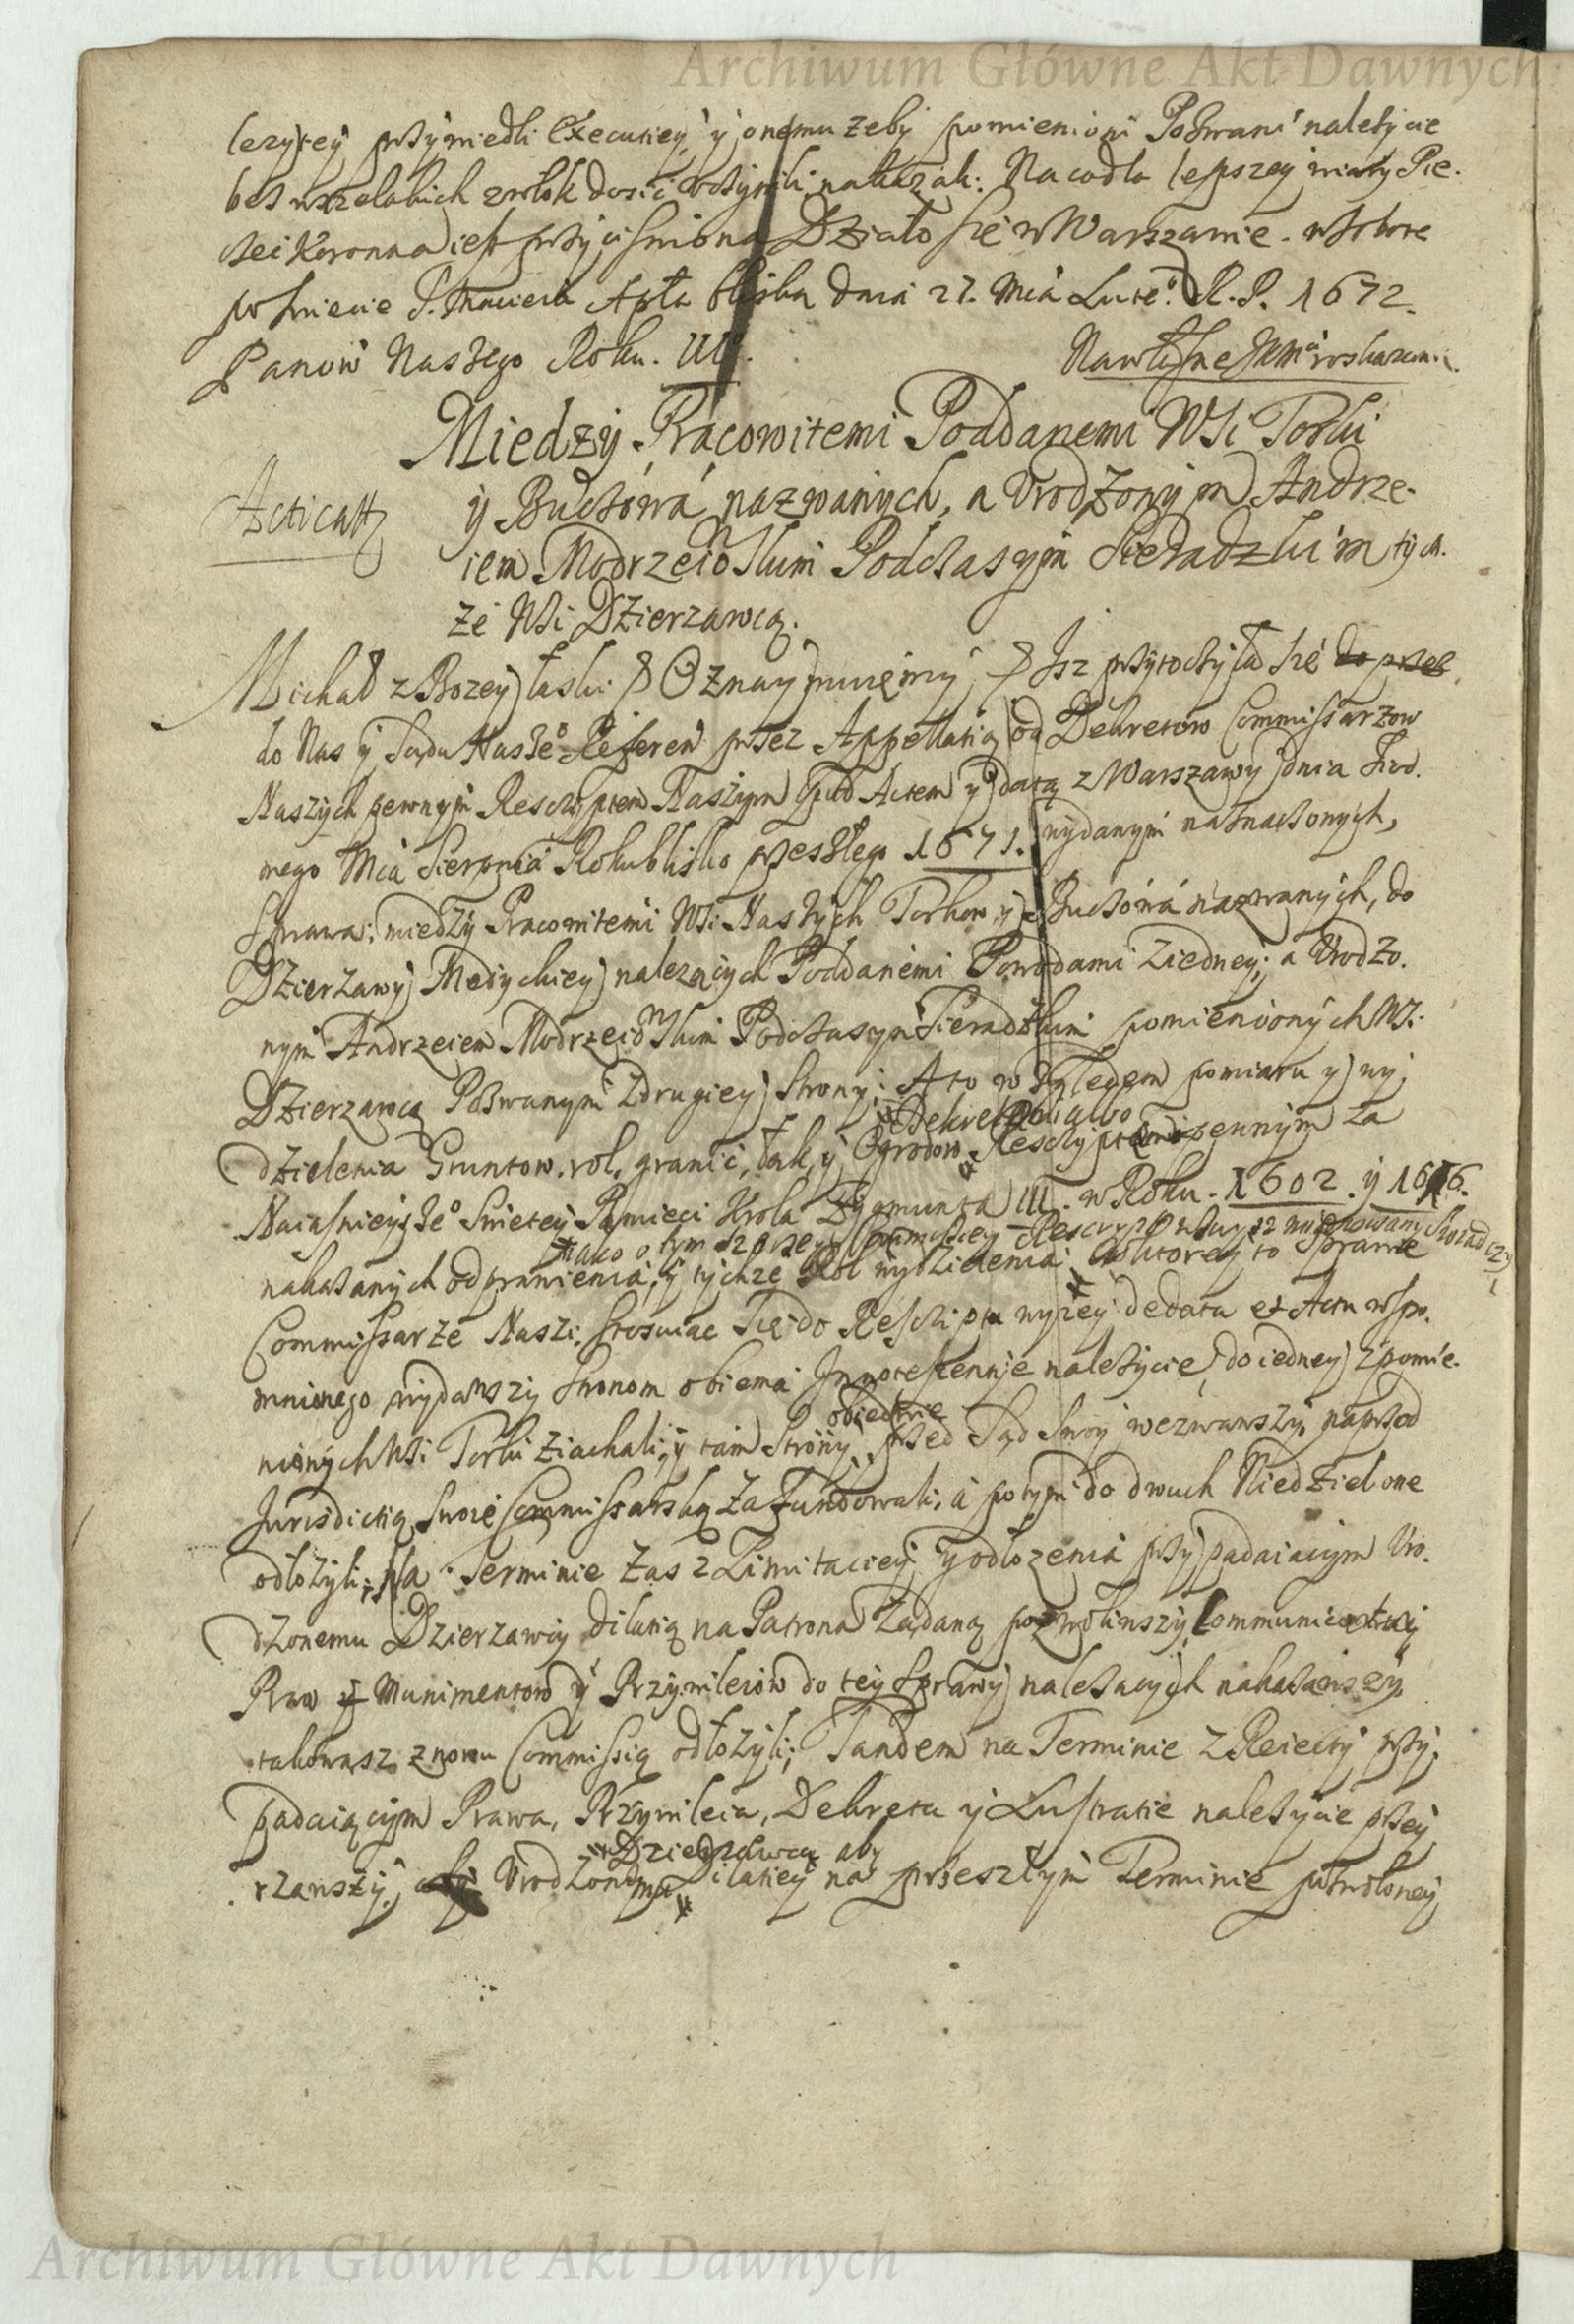 Archiwum Główne Akt Dawnych
lezytey przywiedli Executiey, y onemu zeby pomienioni Pozwani nalezycie
bes wszelakich zwłok dosic vczynili nakazali. Na co dla lepszey wiary Pie.
czec Koronna iest przycisniona Działo sie w Warszawie. w Sobote
po Swiecie S. Macieia Apła bliska dnia 27. Mca Lute°. R. P. 1672.
Panow. Naszego Roku. III.
Na własne JKMci roskazanie.
Miedzy Pracowitemi Poddanemi WSi Torki
Acticatt
y Buczowa nazwanych, a Vrodzonym Andrze-
iem Modrzeiowskim Podczaszym Sieradzkim tych.
ze WSi Dzierzawcą.
Michał z Bozey łaski § Oznaymuiemy § Isz przytoczyła sie do przes
do Nas y Sądu Nasze° Referen przez Appellatią od Dekretow Commissarzow
Naszych pewnym Rescryptem Naszym Sub Actem y datą z Warszawy dnia Siod.
mego Mca Sierpnia Roku blisko przeszłego 1671. wydanym naznaczonych,
Sprawa; miedzy Pracowitemi WSi Naszych Torkow y Buczowa nazwanych, do
Dzierzawy Medyckiey nalezących Poddanemi Powodami z iedney; a Vrodzo.
nym Andrzeiem Modrzeiowskim Podczaszym Sieradzkim pomienionych WSi
Dzierzawcą Pozwanym z drugiey Strony; A to wzgledem pomiaru y wy
Dekretow albo
dzielenia Gruntow. rol, granic, łąk, y Ogrodow Rescryptem pewnym za
Naiasnieysze° Swietey Pamieci Krola Zygmunta III. w Roku. 1602. y 1616.
iako o tym szerzey pomieniey Rescrypt wyzey mianowany Swiadczy
nakazanych odprawienia, y tychze Rol wydzielenia; w ktorey to Sprawie
Commissarze Naszi, stosuiac Sie do Rescriptu wyzey de data et Actu wspo.
mnionego wydawszy Stronom obiema Innotescentie nalezycie, do iedney z pomie.
obiedwie
nionych WSi Torki ziachali, y tam Strony, przed Sąd Swoy wezwawszy, naprzod
Jurisdictią Swoię Commissarską zafundowali, a potym do dwuch Niedziel one
odłozyli; Na Terminie zas z Limitaciey y odłozenia przypadaiacym Vro.
dzonemu Dzierzawcy dilatią na Patrona ządaną pozwoliwszy, Communicatią
Praw y Munimentow y Przywileiow do tey Sprawy nalezących nakazawszy,
takowasz znowu Commissią odłozyli; Tandem na Terminie z Reiecty przy.
padaiącym Prawa, Przywileia, Dekreta y Lustratie nalezycie przey
Dzierzawca aby
rzawszy, Vrodzonemu Dilatiey na przeszłym Terminie pozwoloney
Archiwum Główne Akt Dawnych